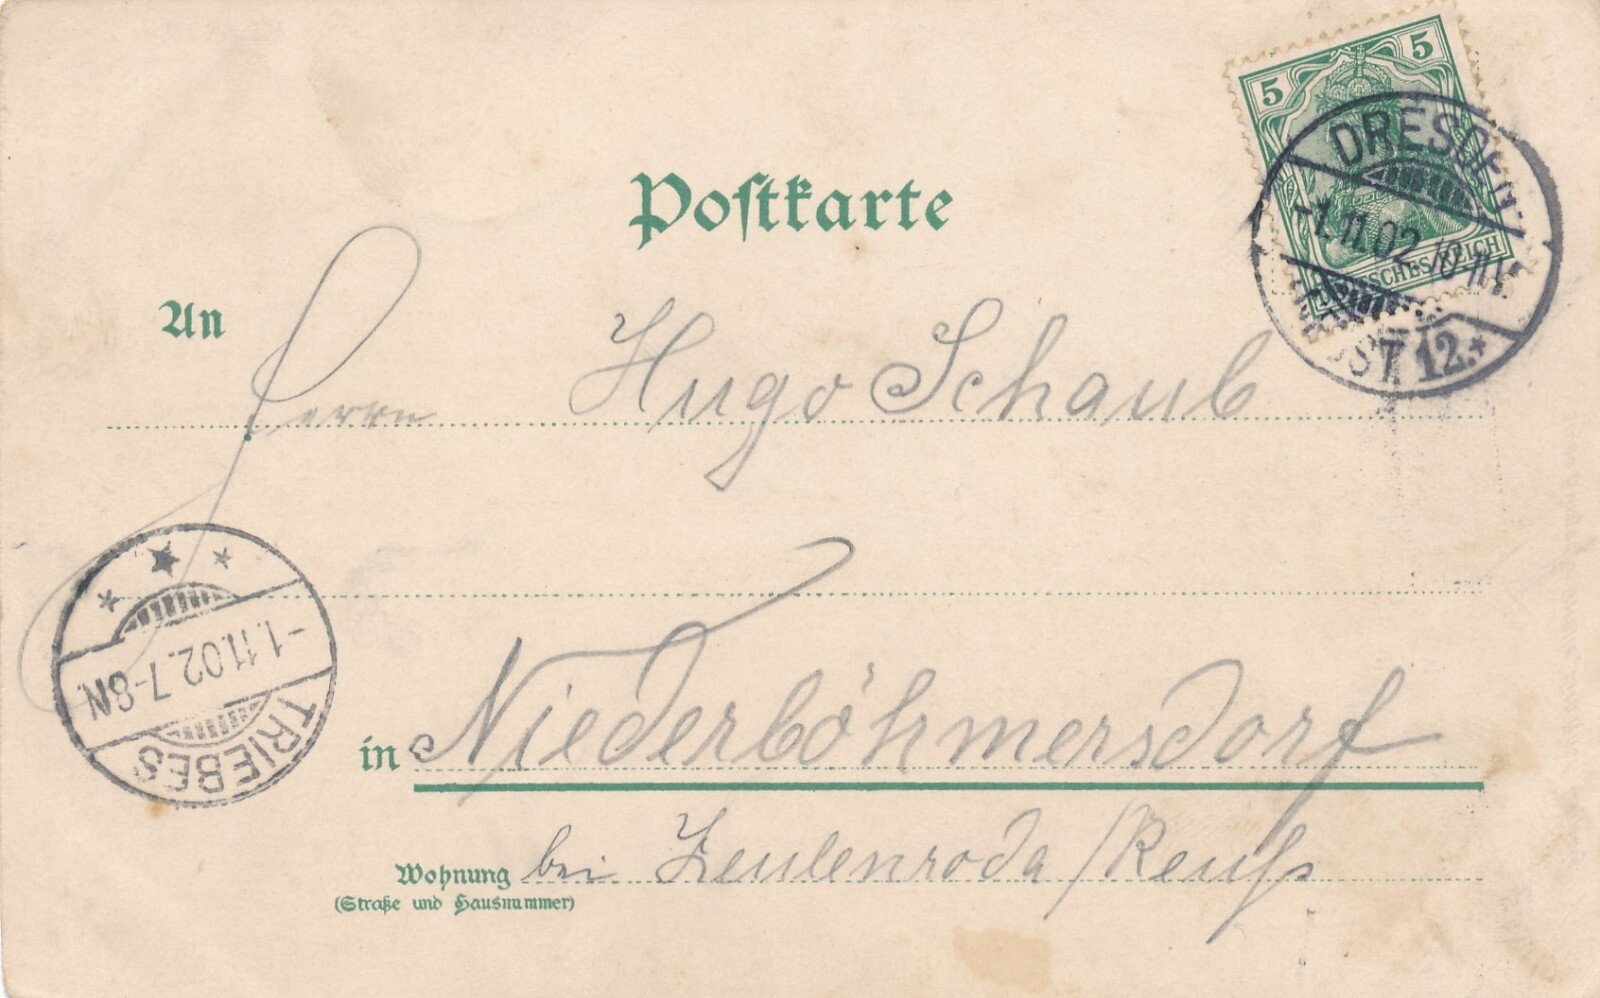 5 5
DEUTSCHES REICH
DRESDEN
-1.11.02. 10-11V.
ALTST. 12.*
Postkarte
An
Herrn Hugo Schaub
-1.11.02.7-8N.
TRIEBES
in Niederböhmersdorf
Wohnung bei Zeulenroda/Reuß
(Straße und Hausnummer)